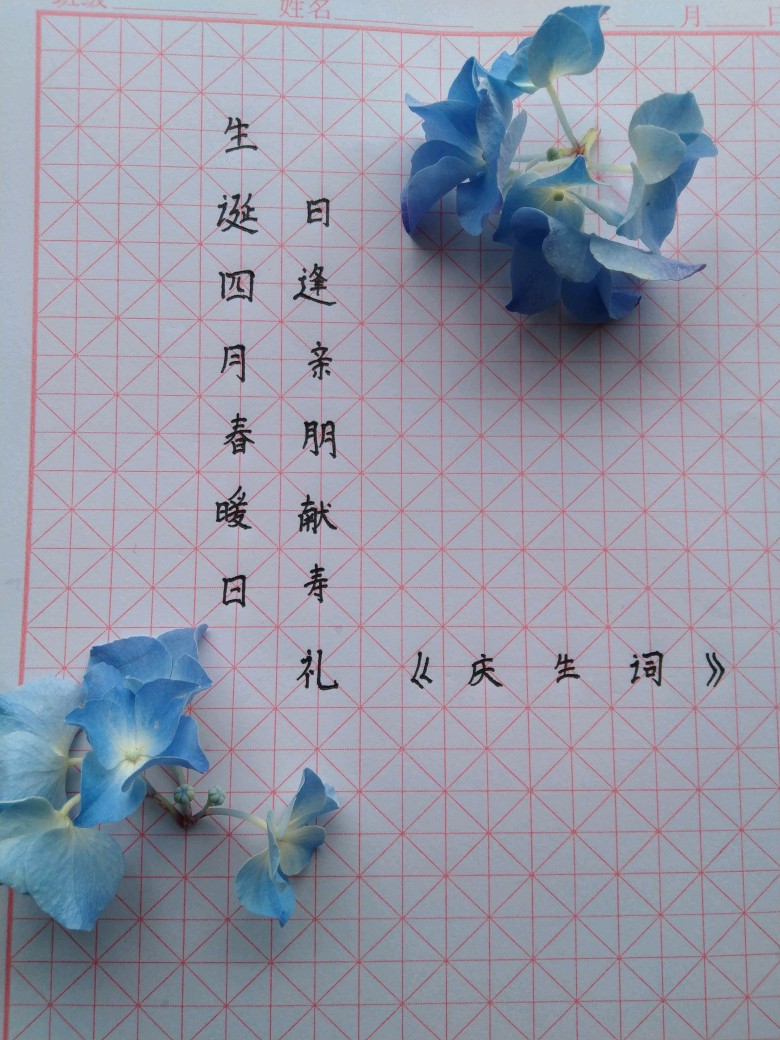 姓名
月
生诞四月春暖日
日逢亲朋献寿礼
《庆生词》